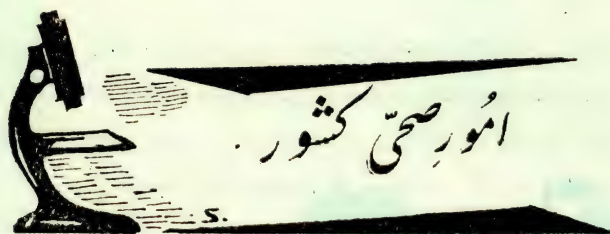 اُمُورِ صحّی کشور
S.